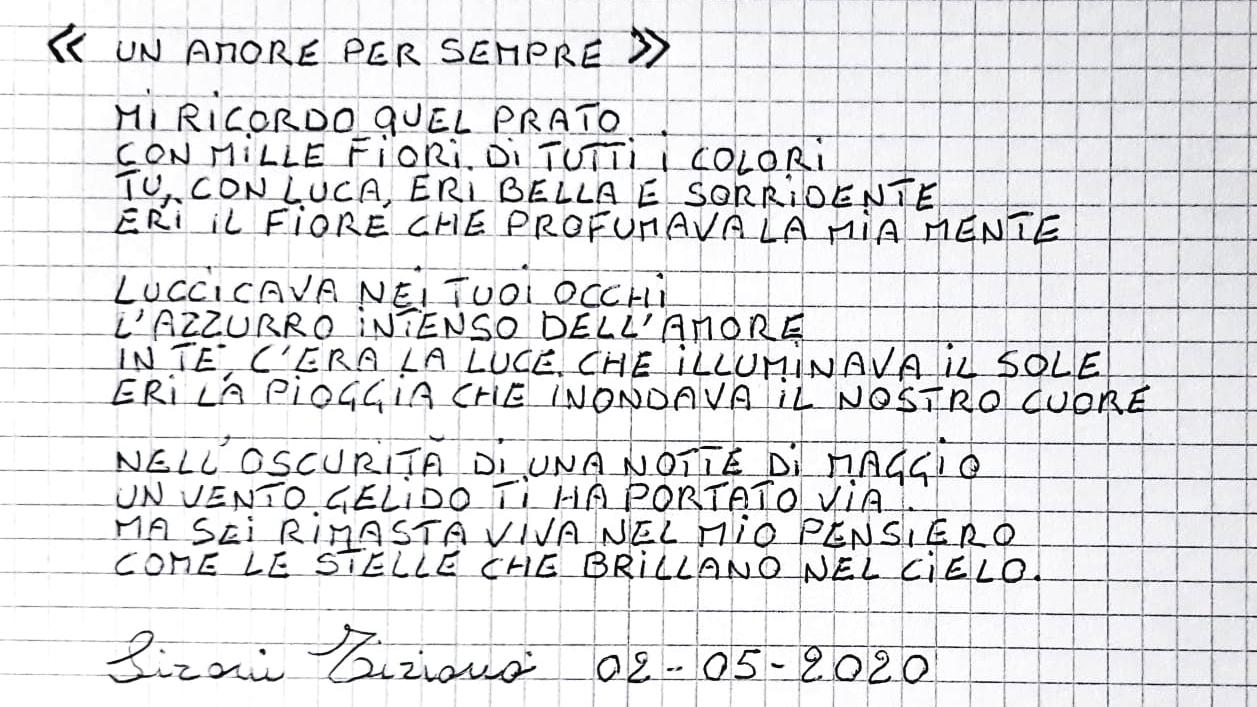 « UN AMORE PER SEMPRE »
MI RICORDO QUEL PRATO
CON MILLE FIORI DI TUTTI I COLORI
TU, CON LUCA, ERI BELLA E SORRIDENTE
ERI IL FIORE CHE PROFUMAVA LA MIA MENTE
LUCCICAVA NEI TUOI OCCHI
L'AZZURRO INTENSO DELL'AMORE
IN TE, C'ERA LA LUCE CHE ILLUMINAVA IL SOLE
ERI LA PIOGGIA CHE INONDAVA IL NOSTRO CUORE
NELL'OSCURITÀ DI UNA NOTTE DI MAGGIO
UN VENTO GELIDO TI HA PORTATO VIA
MA SEI RIMASTA VIVA NEL MIO PENSIERO
COME LE STELLE CHE BRILLANO NEL CIELO.
Sironi Tiziano 02-05-2020